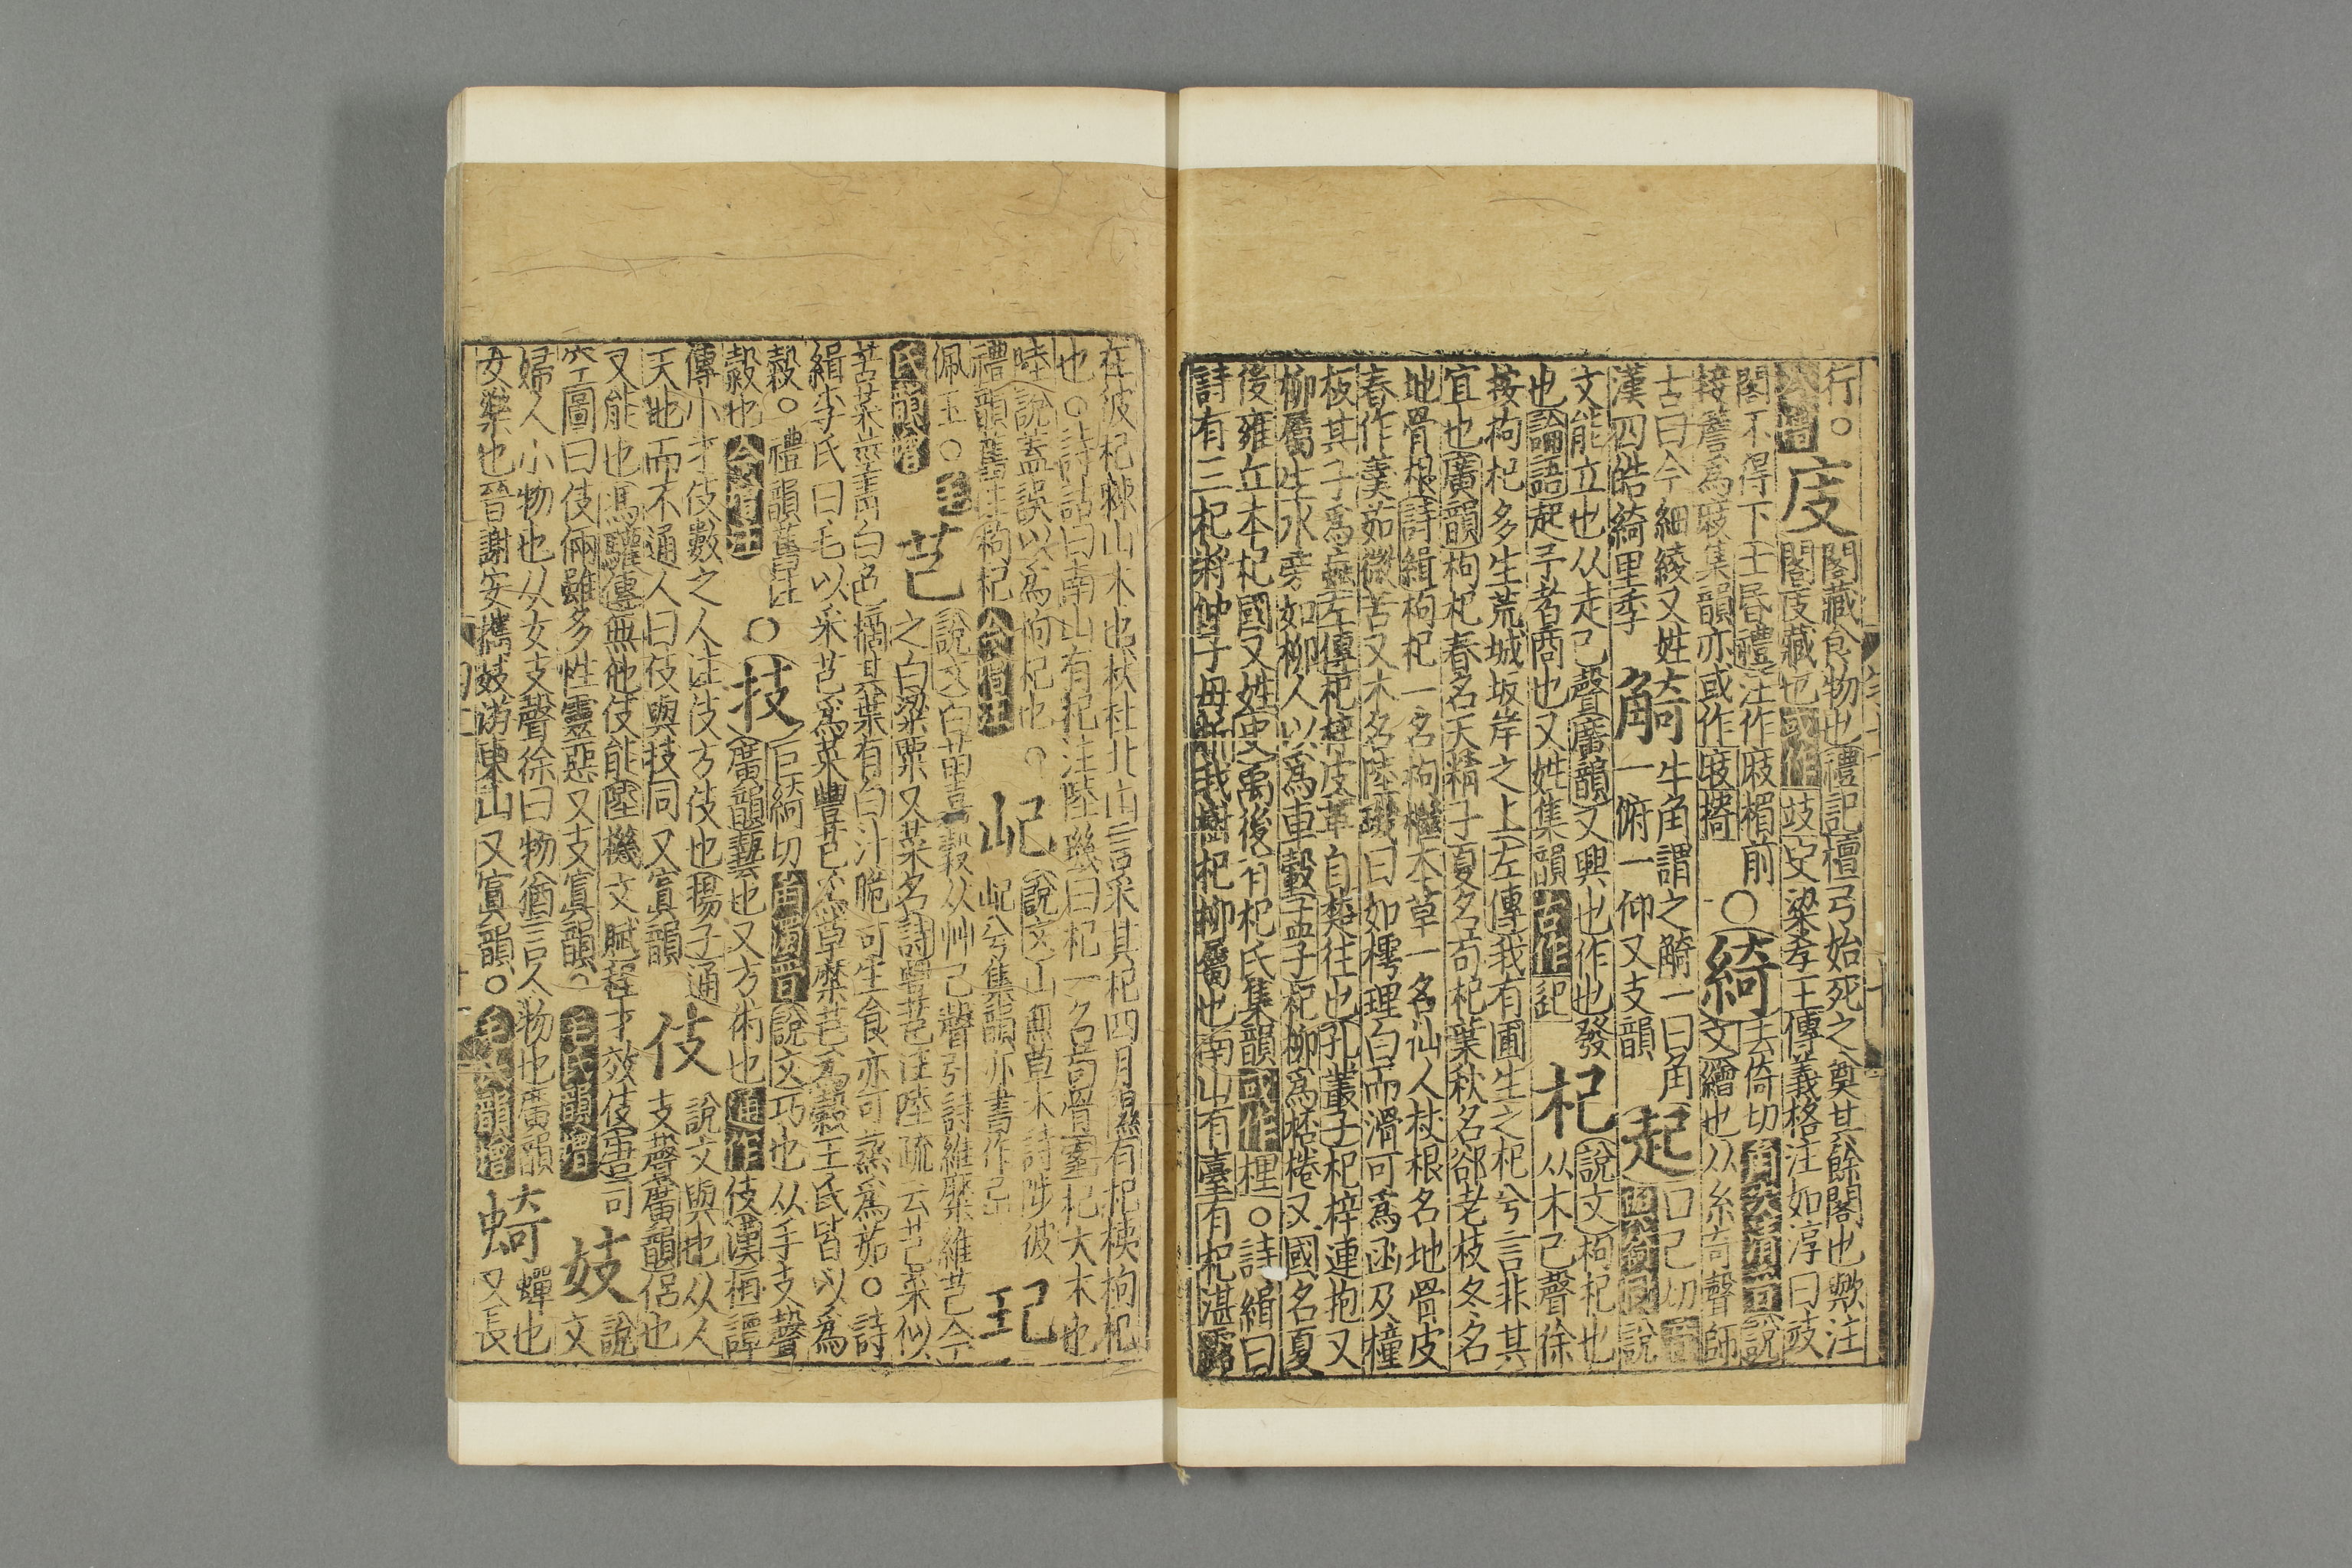 行○
公增
庋
閣藏食物也禮記檀弓始死之奠其餘閣也歟注
閣庋藏也或作攱史梁孝王傳義格注如淳曰攱
閣不得下士昏禮注作庪楣前
接簷爲庪集韻亦或作庪
○綺
去倚切角次清音說
文繒也从糸奇聲師
古曰今細綾又姓
漢四皓綺里季
觭
牛角謂之觭一曰角
一俯一仰又支韻
起
口己切音
與綺同說
文能立也从走己聲廣韻又興也作也發
也論語起予者商也又姓集韻古作
杞
說文枸杞也
从木己聲徐
按枸杞多生荒城坂岸之上左傳我有圃生之杞兮言非其
宜也廣韻枸杞春名天精子夏名苟杞葉秋名郤老枝冬名
地骨根詩緝枸杞一名枸檵本草一名仙人杖根名地骨皮
春作羹茹微苦又木名陸璣曰如樗理白而滑可爲函及橦
板其子爲左傳杞梓皮革自楚往也孔叢子杞梓連抱又
柳屬生水旁如柳人以爲車轂孟子杞柳爲桮棬又國名夏
後雍丘本杞國又姓史禹後有杞氏集韻或作梩○詩緝曰
詩有三杞將仲子毋折我樹杞柳屬也南山有臺有杞湛露
在彼杞棘山木也杕杜北山言采其杞四月隰有杞桋枸杞
也○詩詁曰南山有杞注陸璣曰杞一名苟骨杞大木也
陸說蓋誤以爲枸杞也○
禮韻舊注枸杞公增注
屺
說文山無草木詩陟彼
屺兮集韻亦書作
玘
佩玉○毛
氏韻增
芑
說文白苗嘉穀从艸己聲引詩維穈維芑今
之白粱粟又菜名詩豐芑注陸疏云芑菜似
苦菜莖青白色摘其葉有白汁脆可生食亦可蒸爲茹○詩
緝李氏曰毛以采芑爲菜豐芑爲草穈芑爲穀王氏皆以爲
穀○禮韻舊注
穀也公增注
○技
巨綺切角濁音說文巧也从手支聲
廣韻藝也又方術也通作伎漢桓譚
傳小才伎數之人注伎方伎也揚子通
天地而不通人曰伎與技同又寘韻
伎
說文與也从人
支聲廣韻侶也
又能也馮驩傳無他伎能陸機文賦程才效伎唐司
空圖曰伎倆雖多性靈惡又支寘韻○毛氏韻增
妓
說
文
婦人小物也从女支聲徐曰物猶言人物也廣韻
女樂也晉謝安攜妓游東山又寘韻○毛氏韻增
蟬也
又長